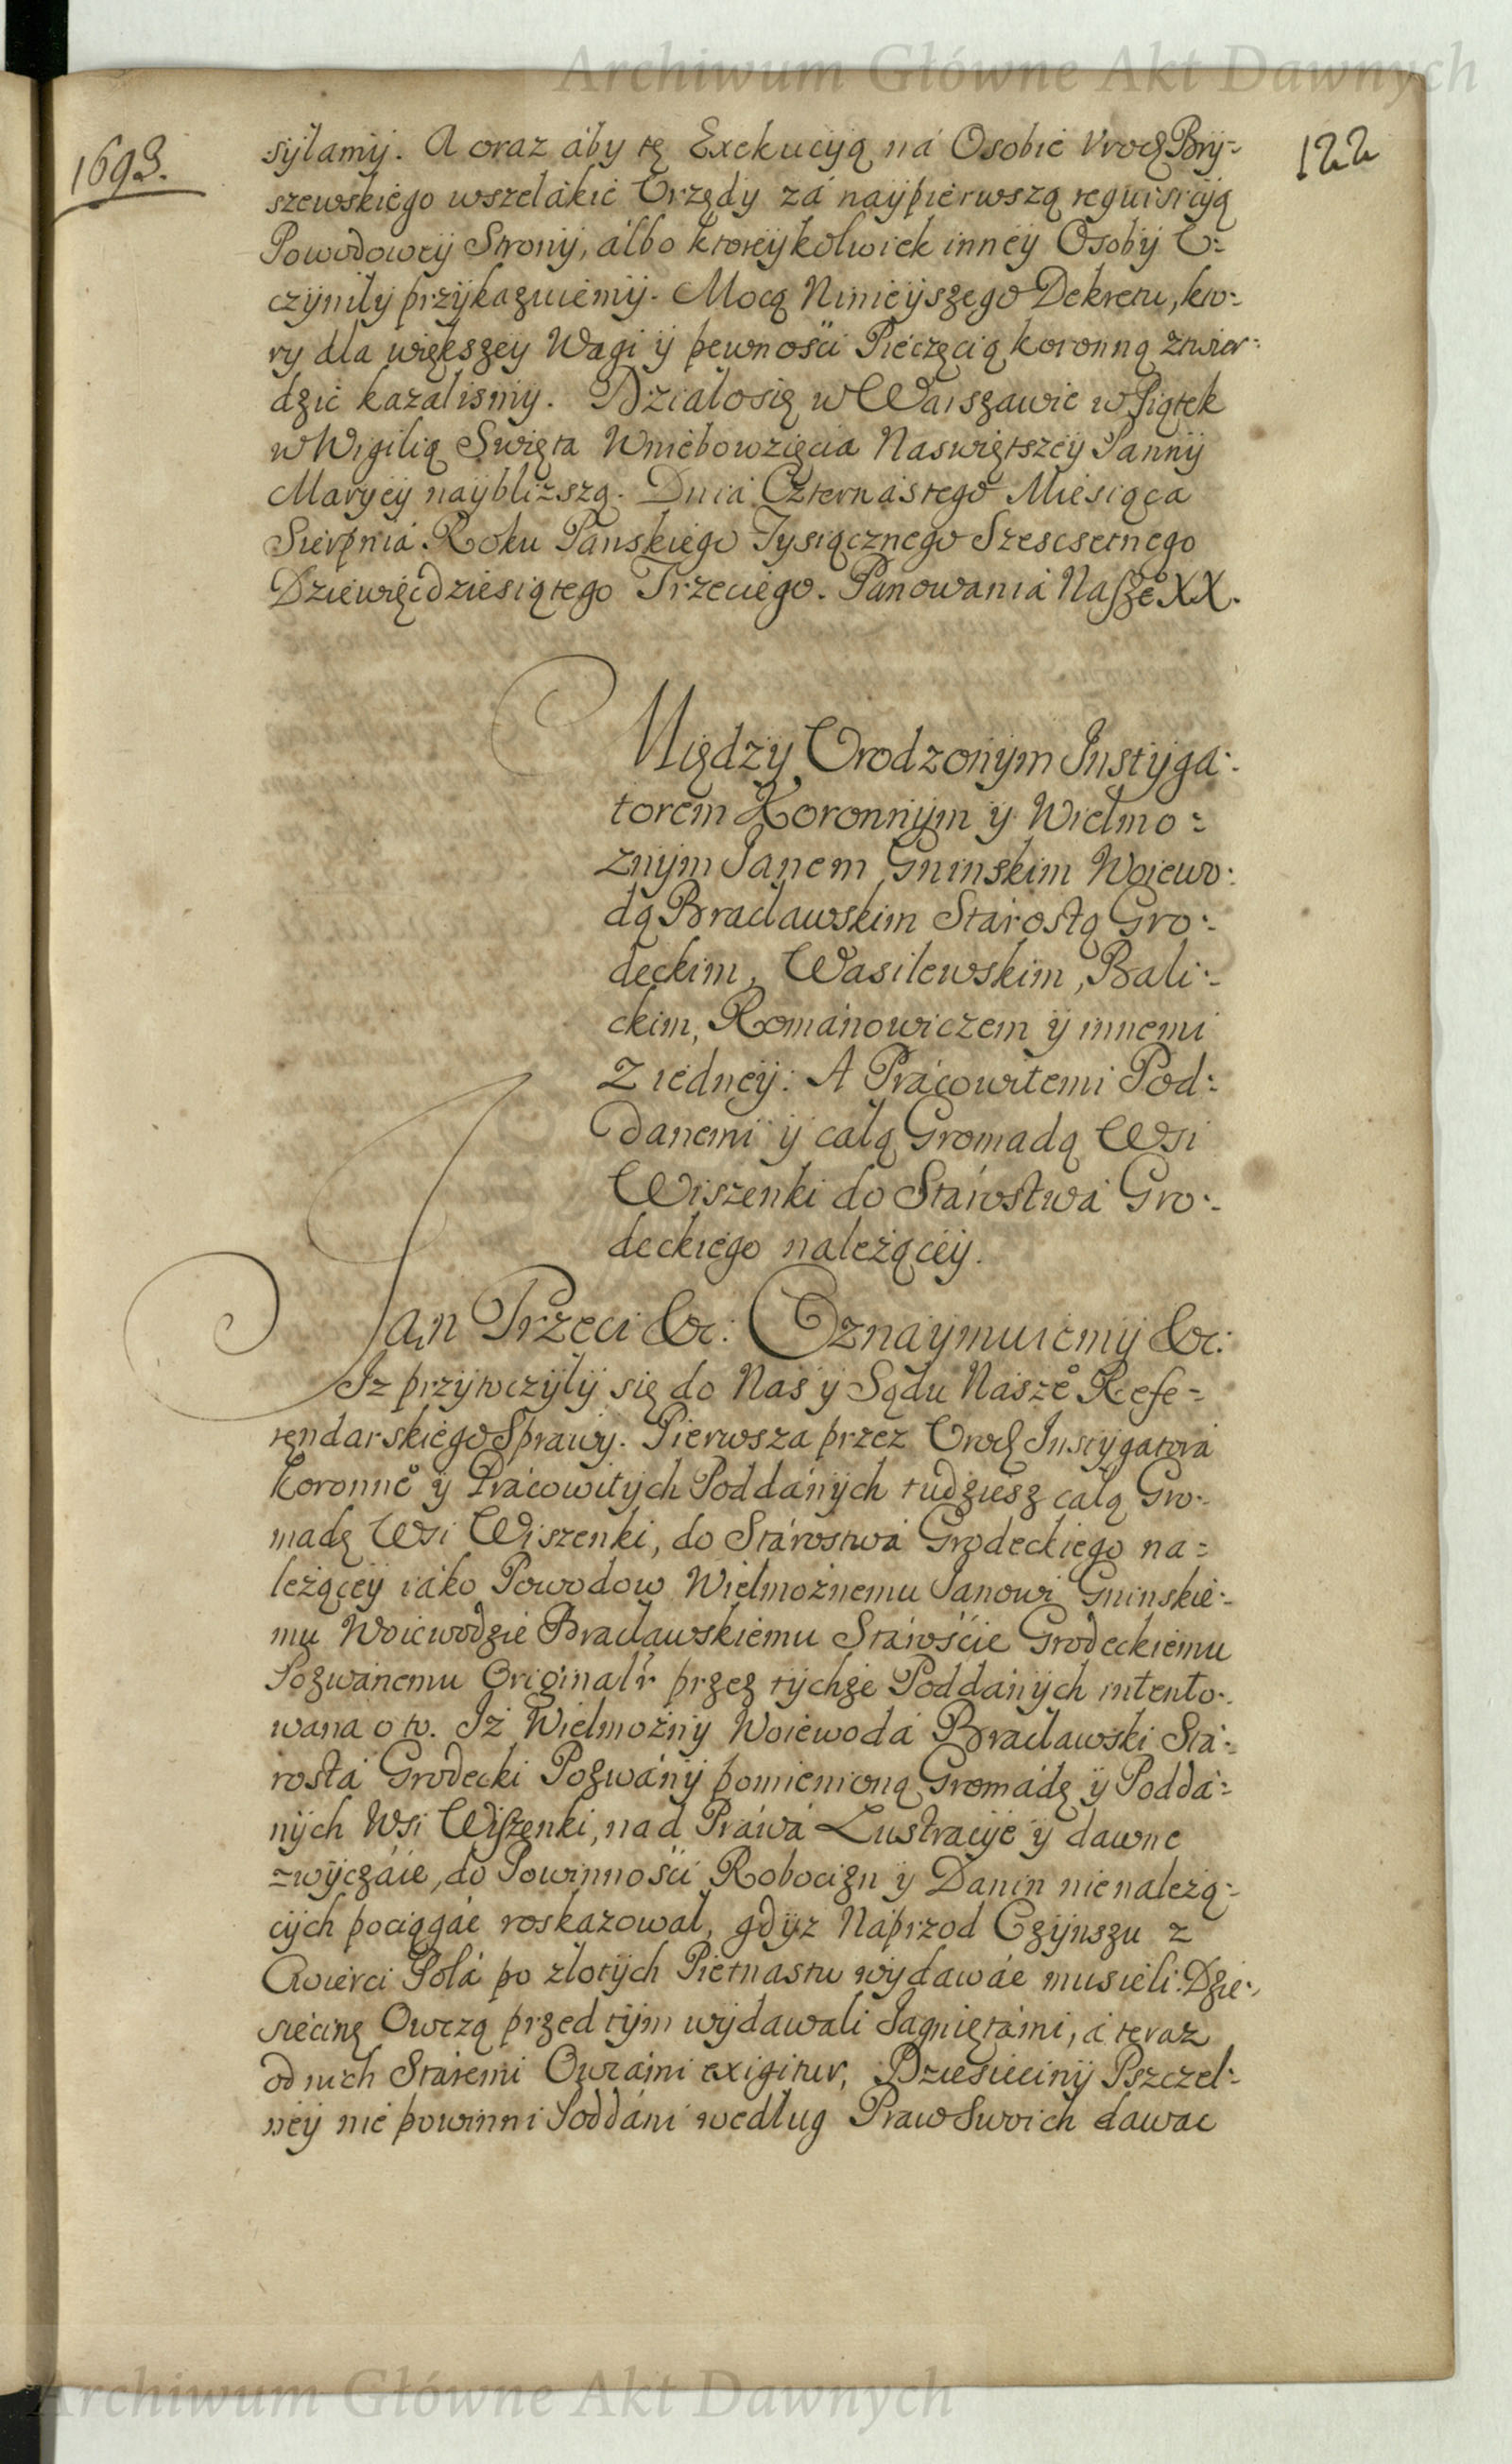 Archiwum Główne Akt Dawnych
1693.
122
syłamy. A oraz áby tę Exekucyą ná Osobie Vrodz Bry-
szewskiego wszelákie Urzędy zá naypierwszą requisicyą
Powodowey Strony, álbo ktoreykolwiek inney Osoby U-
czyniły przykazuiemy. Mocą Ninieyszego Dekretu, kto-
ry dla większey Wagi y pewności Pieczęcią koronną ztwier-
dzić kazalismy. Działosię w Warszawie w Piątek
w Wigilią Swięta Wniebowzięcia Naswiętszey Panny
Maryey naybliższą. Dniá Czternástego Miesiąca
Sierpniá Roku Pánskiego Tysiącznego Szescsetnego
Dziewięcdziesiątego Trzeciego. Pánowaniá Naszego XX.
Między Urodzonym Instyga-
torem Koronnym y Wielmo-
żnym Janem Gninskim Woiewo-
dą Bracławskim Stárostą Gro-
deckim, Wasilewskim, Bali-
ckim, Románowiczem y innemi
z iedney: A Prácowitemi Pod-
danemi y całą Gromadą Wsi
Wiszenki do Stárostwá Gro-
deckiego należącey.
Jan Trzeci &c: Oznaymuiemy &c:
Iz przytoczyły się do Nas y Sądu Nászeo Refe-
rendarskiego Sprawy. Pierwsza przez Urodz Instygatorá
Koronneo y Prácowitych Poddánych tudziesz całą Gro-
madę Wsi Wiszenki, do Stárostwá Grodeckiego na-
leżącey iáko Powodow Wielmożnemu Janowi Gninskie-
mu Woiewodzie Bracławskiemu Stárośćie Grodeckiemu
Pozwánemu Originalr przez tychże Poddánych intento-
wana o to. Iż Wielmożny Woiewodá Bracławski Stá-
rostá Grodecki Pozwány pomienioną Gromádę y Poddá-
nych Wsi Wiszenki, nad Práwá Lustracye y dawne
zwyczáie, do Powinnośći Robocizn y Danin nienależą-
cych pociągáć roskazował, gdyz Náprzod Czynszu z
Cwierci Polá po złotych Pietnastu wydawáć musieli. Dzie-
siecinę Owczą przed tym wydawali Jagniętámi, á teraz
od nich Stáremi Owcámi exigitur, Dziesieciny Pszczel-
ney nie powinni Poddáni według Praw Swoich dawac
Archiwum Główne Akt Dawnych